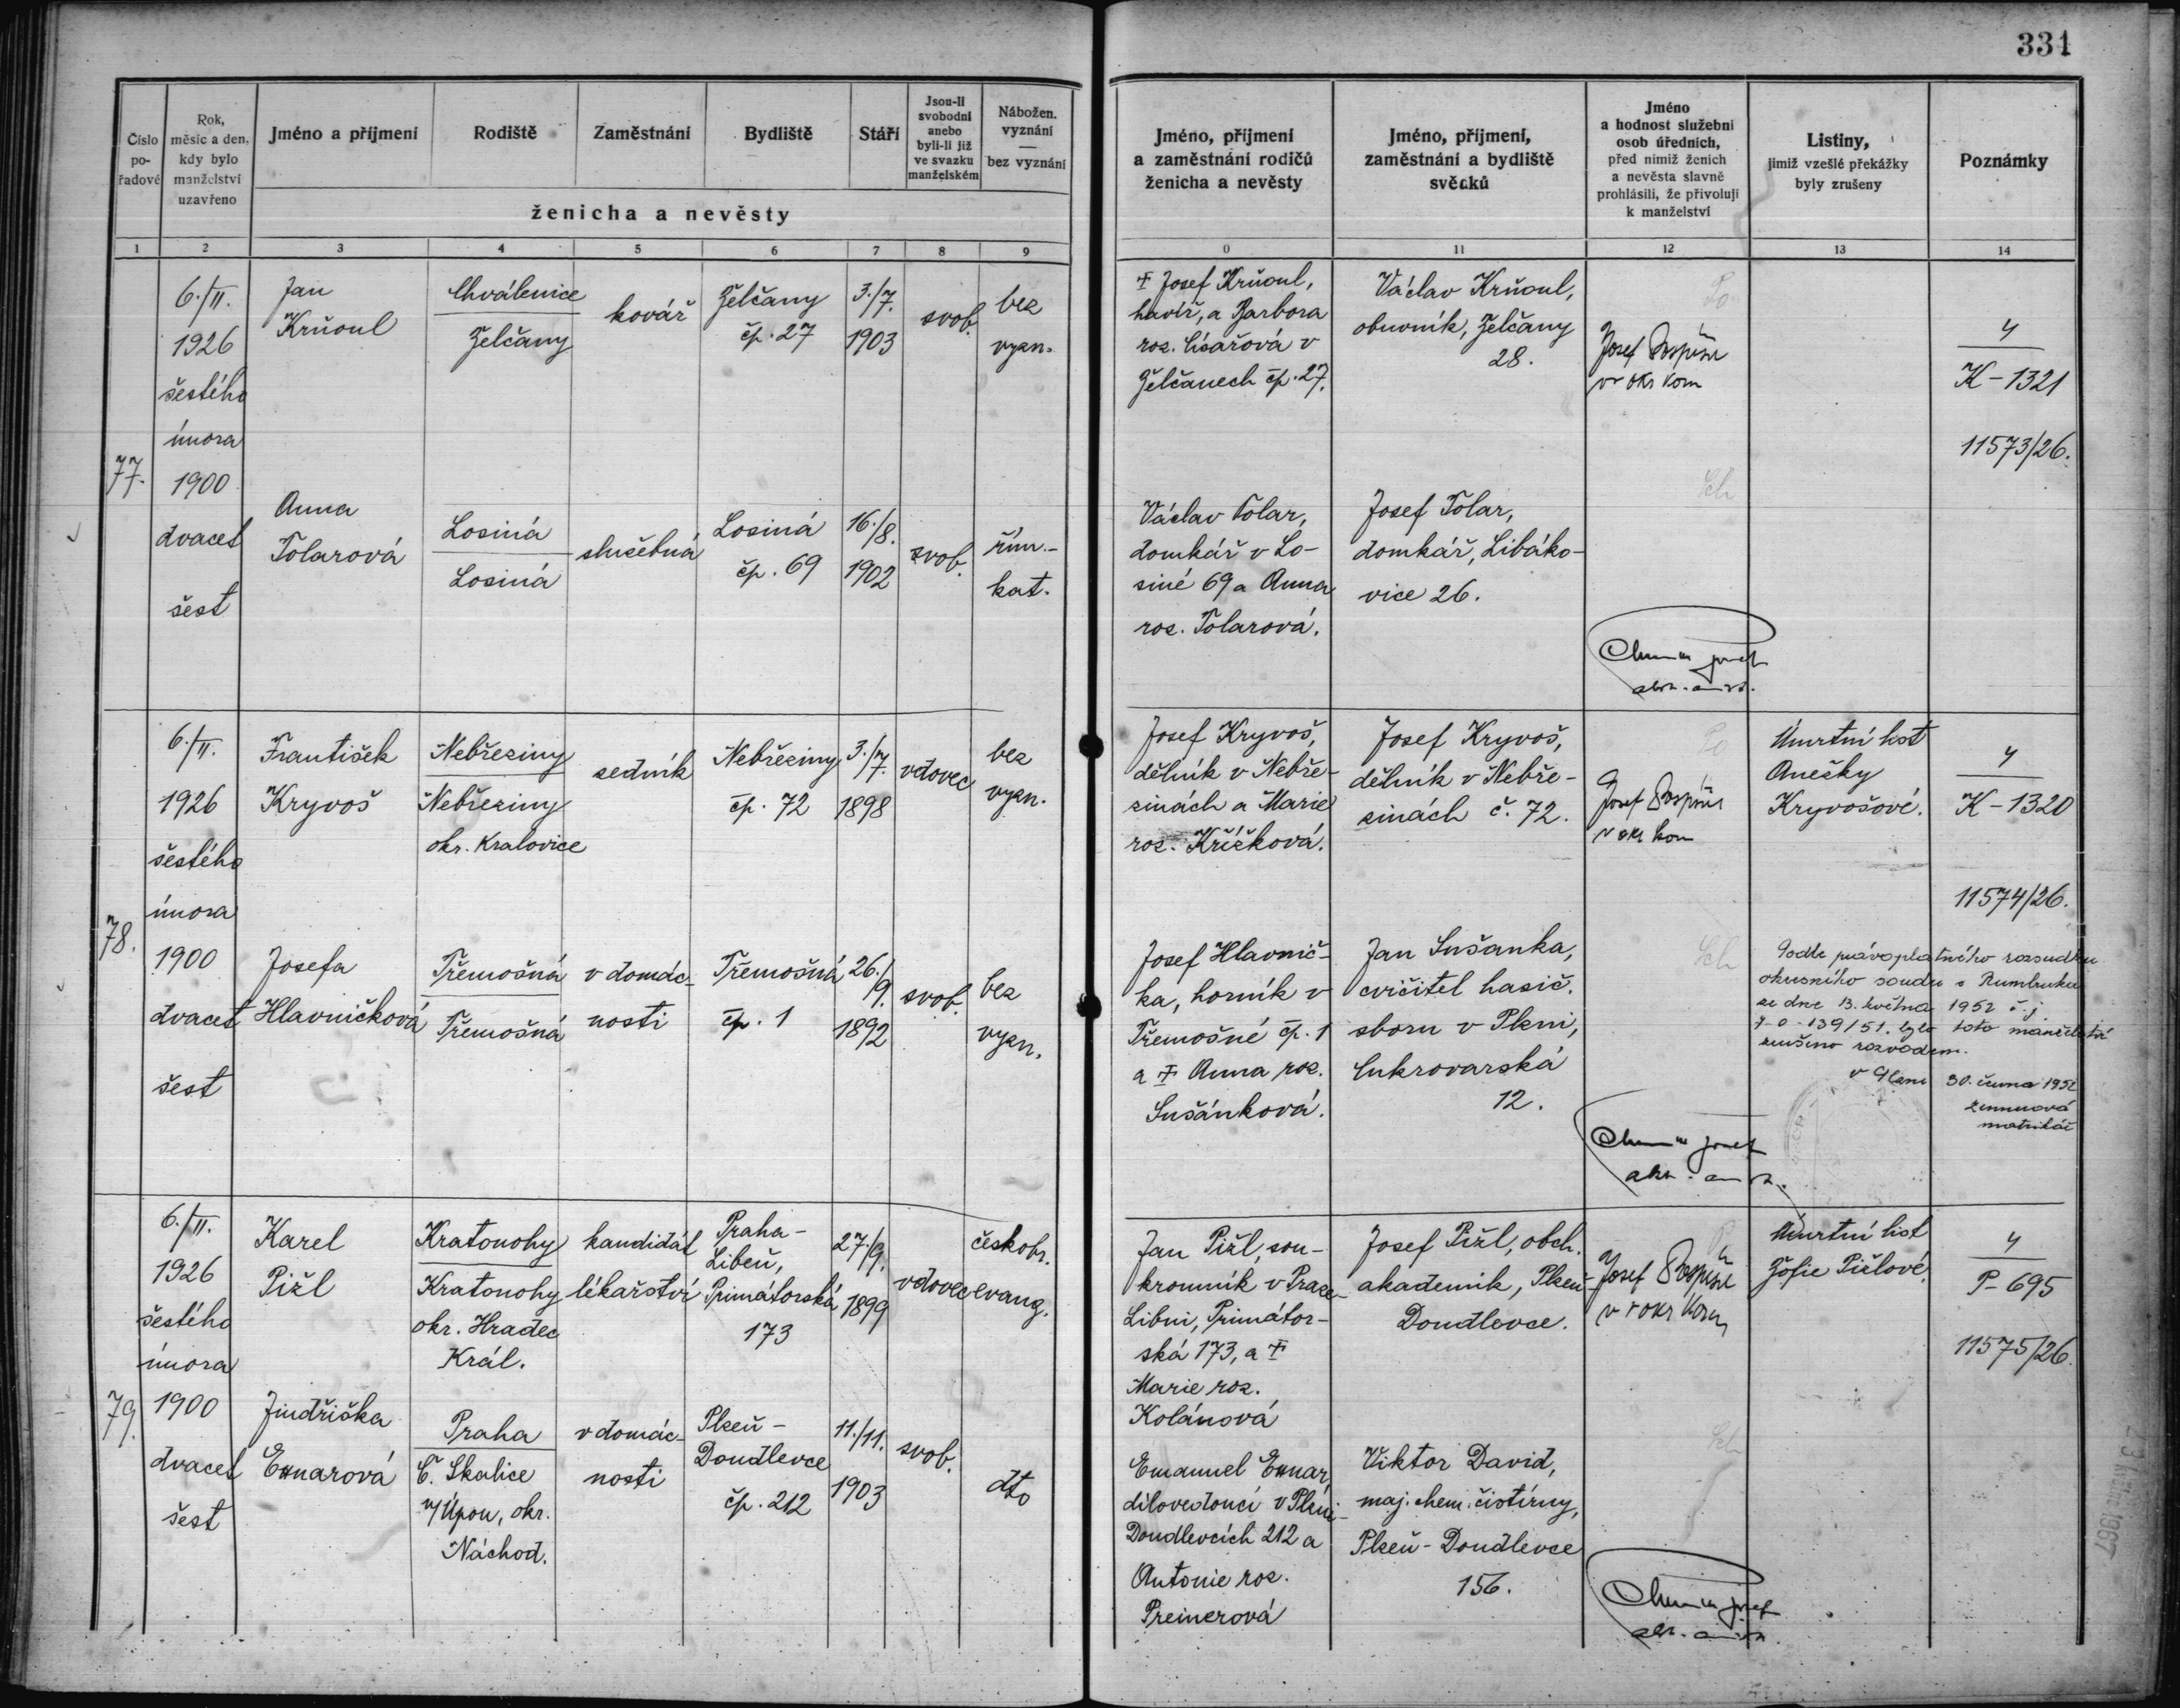 331
Číslo pořadové
Rok, měsíc a den, kdy bylo manželství uzavřeno
Jméno a příjmení
Rodiště
Zaměstnání
Bydliště
Stáří
Jsou-li svobodni anebo byli-li již ve svazku manželském
Nábožen. vyznání — bez vyznání
ženicha a nevěsty
Jméno, příjmení a zaměstnání rodičů ženicha a nevěsty
Jméno, příjmení, zaměstnání a bydliště svědků
Jméno a hodnost služební osob úředních, před nimiž ženich a nevěsta slavně prohlásili, že přivolují k manželství
Listiny, jimiž vzešlé překážky byly zrušeny
Poznámky
1 2 3 4 5 6 7 8 9 0 11 12 13 14
77.
6./II.
1926
šestého
února
1900
dvacet
šest
Jan
Krňoul
Chválenice
Želčany
kovář
Želčany
čp. 27
3./7.
1903
svob.
bez
vyzn.
☩ Josef Krňoul,
havíř, a Barbora
roz. Císařová v
Želčanech čp. 27.
Václav Krňoul,
obuvník, Želčany
28.
Po
Josef Pospíšil
v okr kom
4
K-1321
11573/26.
Anna
Tolarová
Losiná
Losiná
služebná
Losiná
čp. 69
16./8.
1902
svob.
řím.-
kat.
Václav Tolar,
domkář v Lo-
siné 69 a Anna
roz. Tolarová.
Josef Tolar,
domkář, Libáko-
vice 26.
Sch
78.
6./II.
1926
šestého
února
1900
dvacet
šest
František
Kryvoš
Nebřeziny
Nebřeziny
okr. Kralovice
sedník
Nebřeziny
čp. 72
3./7.
1898
vdovec
bez
vyzn.
Josef Kryvoš,
dělník v Nebře-
zinách a Marie
roz. Křížková.
Josef Kryvoš,
dělník v Nebře-
zinách č. 72.
Po
Josef Pospíšil
v okr kom
Úmrtní list
Anežky
Kryvošové.
4
K-1320
11574/26.
Josefa
Hlavničková
Třemošná
Třemošná
v domác-
nosti
Třemošná
čp. 1
26./
9.
1892
svob.
bez
vyzn.
Josef Hlavnič-
ka, horník v
Třemošné čp. 1
a ☩ Anna roz.
Sušánková.
Jan Sušanka,
cvičitel hasič.
sboru v Plzni,
Cukrovarská
12.
Sch
Podle právoplatného rozsudku
okresního soudu v Rumburku
ze dne 13. května 1952 č. j.
7-0-139/51. bylo toto manželství
zrušeno rozvodem.
v Plzni 30. června 1952
matrikář
79.
6./II.
1926
šestého
února
1900
dvacet
šest
Karel
Pižl
Kratonohy
Kratonohy
okr. Hradec
Král.
kandidát
lékařství
Praha-
Libeň,
Primátorská
173
27./9.
1899
vdovec
českobr.
evang.
Jan Pižl, sou-
kromník v Praze-
Libni, Primátor-
ská 173, a ☩
Marie roz.
Kolánová
Josef Pižl, obch.
akademik, Plzeň-
Doudlevce.
Josef Pospíšil
v r okr kom
Úmrtní list
Žofie Pižlové.
4
P-695
11575/26.
Jindřiška
Praha
Č. Skalice
n/Úpou, okr.
Náchod.
v domác-
nosti
Plzeň-
Doudlevce
čp. 212
11./11.
1903
svob.
dto
Emanuel
dílovedoucí v Plzni-
Doudlevcích 212 a
Antonie roz.
Preinerová
Viktor David,
maj. chem. čistírny,
Plzeň-Doudlevce
156.
Sch